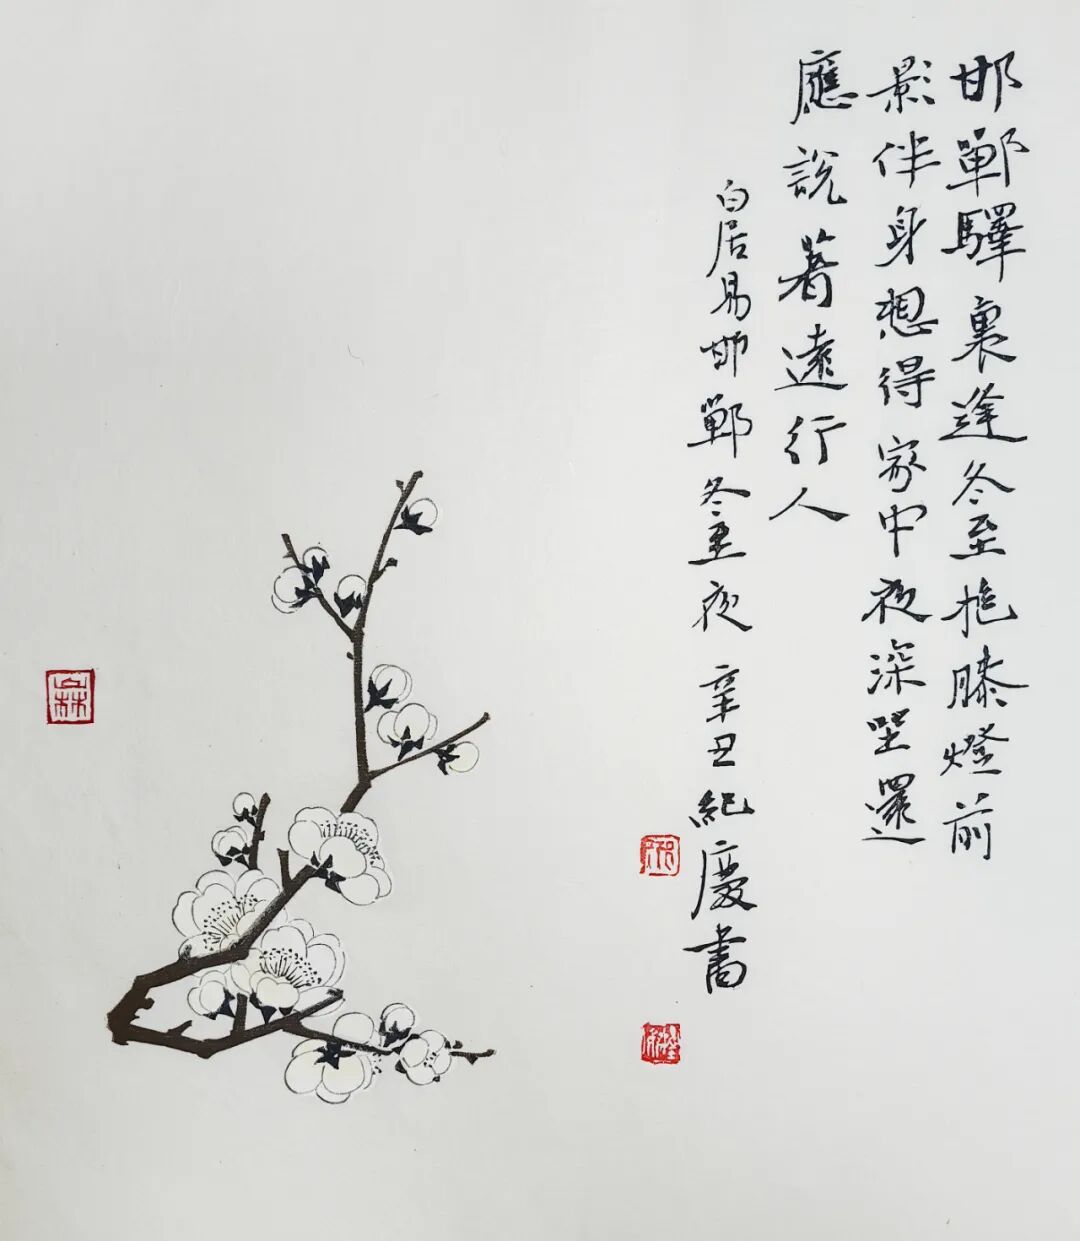 邯鄲驛裏逢冬至抱膝燈前
影伴身想得家中夜深坐還
應說著遠行人
白居易邯鄲冬至夜 辛丑紀慶書